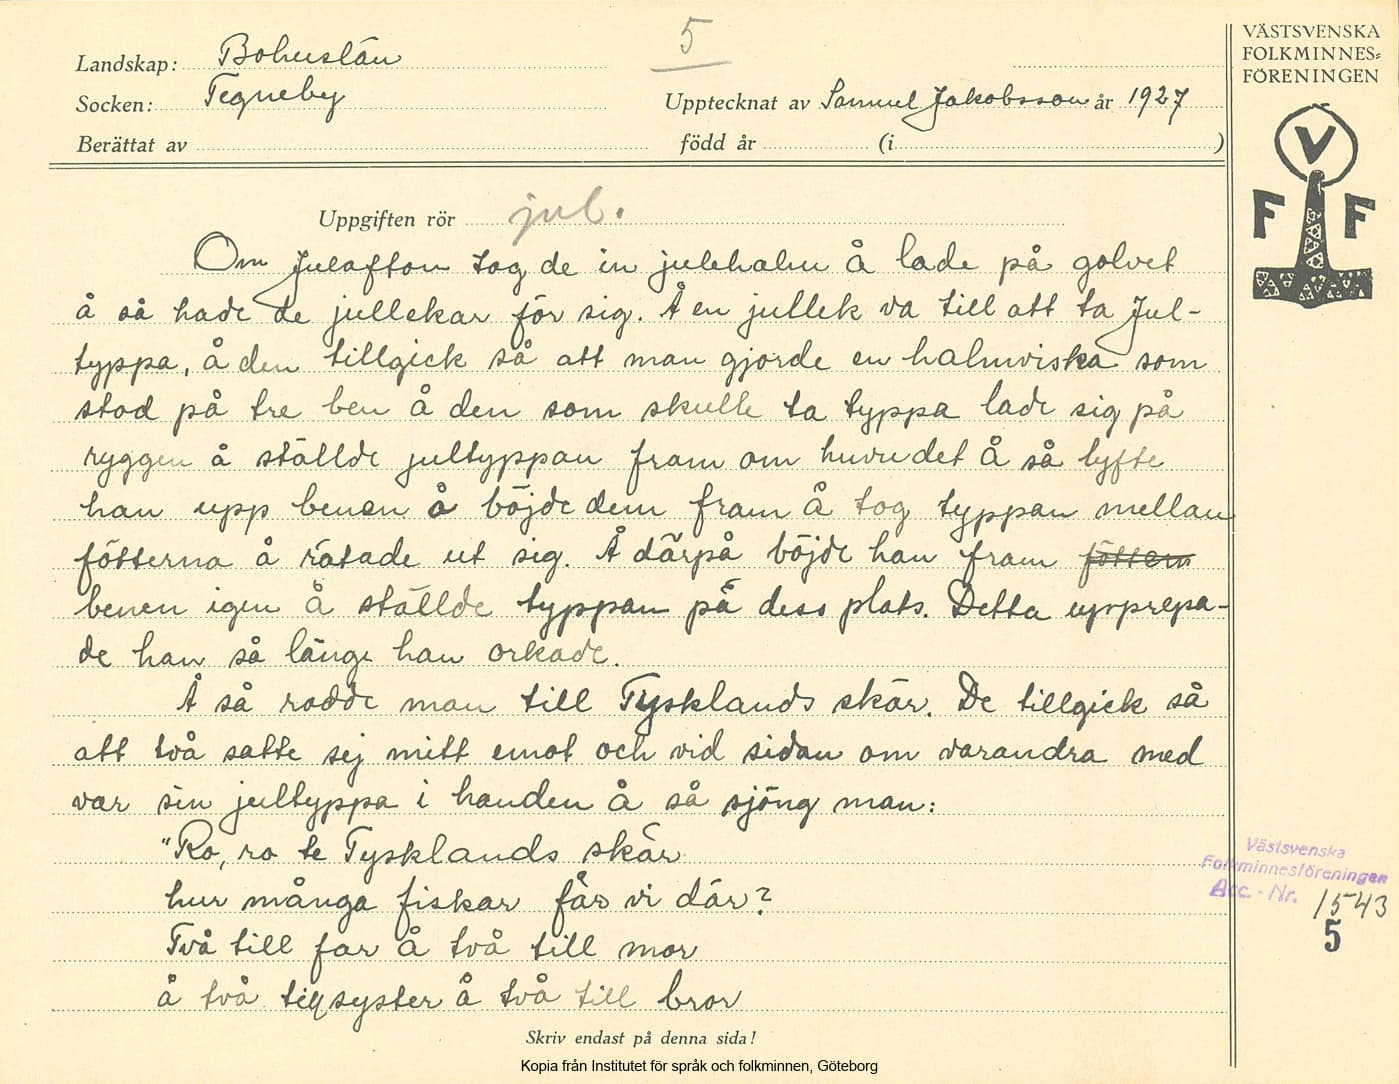 5
VÄSTSVENSKA
FOLKMINNES=
FÖRENINGEN
Landskap: Bohuslän
Socken: Tegneby
Upptecknat av Samuel Jakobsson år 1927
Berättat av
född år (i )
V
F F
Uppgiften rör jul.
Om Julafton tog de in julehalm å lade på golvet
å så hade de jullekar för sig. Å en jullek va till att ta Jul-
typpa, å den tillgick så att man gjorde en halmviska som
stod på tre ben å den som skulle ta typpa lade sig på
ryggen å ställde jultyppan fram om huvudet å så lyfte
han upp benen å böjde dem fram å tog typpan mellan
fötterna å rätade ut sig. Å därpå böjde han fram föttern
benen igen å ställde typpan på dess plats. Detta upprepa-
de han så länge han orkade.
Å så rodde man till Tysklands skär. De tillgick så
att två satte sej mitt emot och vid sidan om varandra med
var sin jultyppa i handen å så sjöng man:
"Ro, ro te Tysklands skär
hur många fiskar får vi där?
Två till far å två till mor
å två till syster å två till bror
Västsvenska
Folkminnesföreningen
Acc. - Nr. 1543
5
Skriv endast på denna sida!
Kopia från Institutet för språk och folkminnen, Göteborg